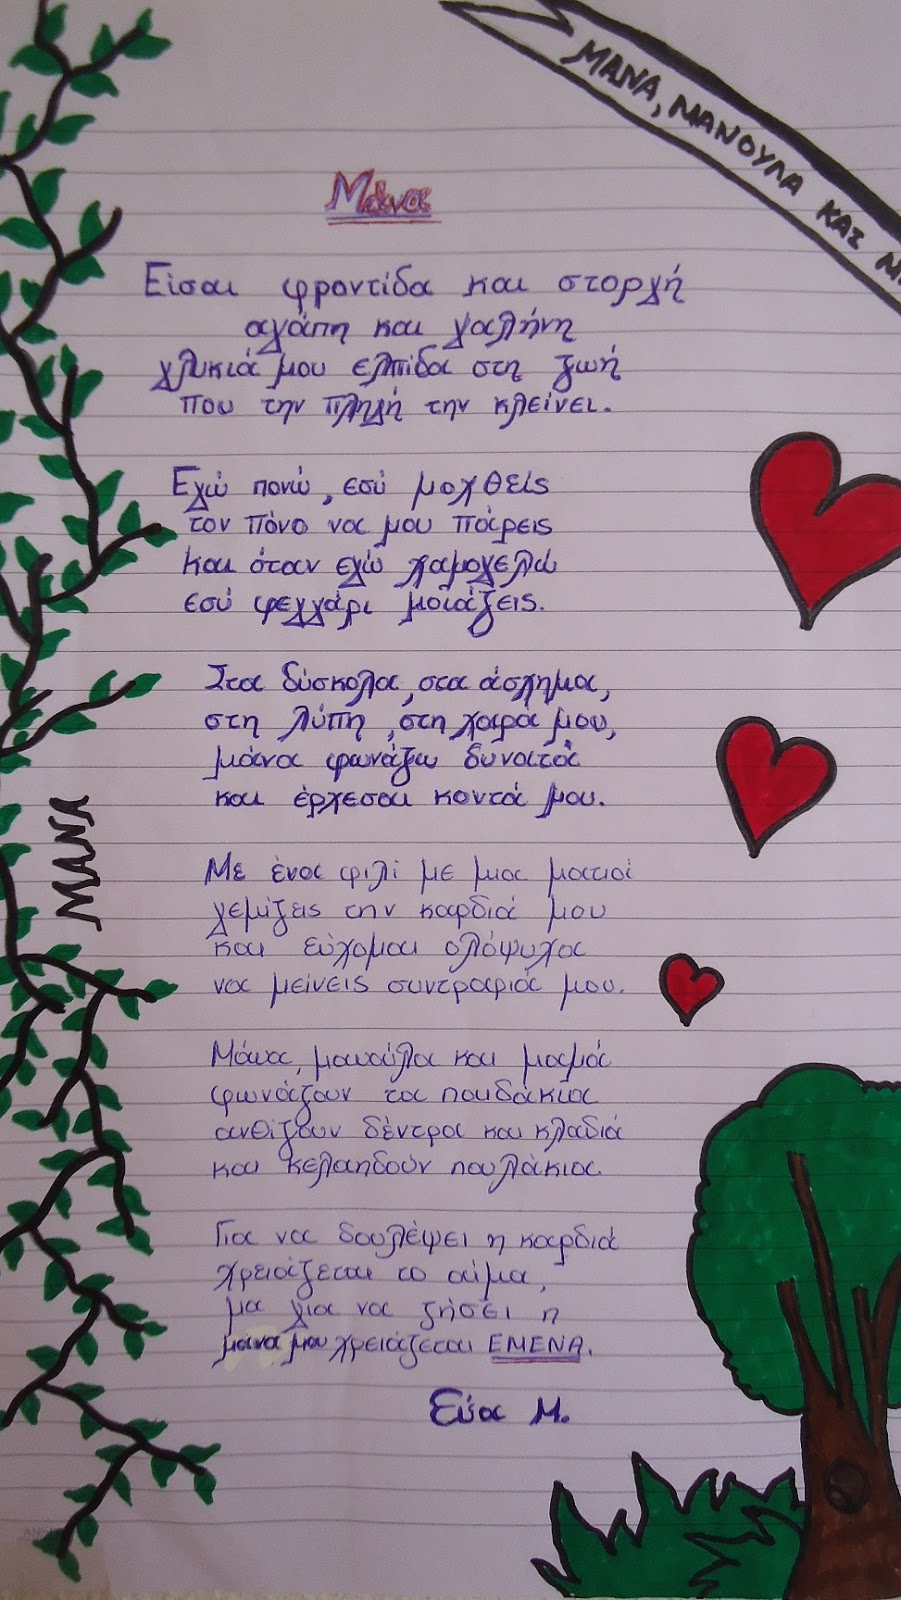 ΜΑΝΑ, ΜΑΝΟΥΛΑ ΚΑΙ
Μάνα
Είσαι φροντίδα και στοργή
αγάπη και γαλήνη
γλυκιά μου ελπίδα στη ζωή
που την πληγή την κλείνει.
Εγώ πονώ, εσύ μοχθείς
τον πόνο να μου πάρεις
και όταν εγώ χαμογελώ
εσύ φεγγάρι μοιάζεις.
Στα δύσκολα, στα άσχημα,
στη λύπη, στη χαρά μου,
μάνα φωνάζω δυνατά
και έρχεσαι κοντά μου.
ΜΑΝΑ
Με ένα φιλί με μια ματιά
γεμίζεις την καρδιά μου
και εύχομαι ολόψυχα
να μείνεις συντροφιά μου.
Μάνα, μανούλα και μαμά
φωνάζουν τα παιδάκια
ανθίζουν δέντρα και κλαδιά
και κελαηδούν πουλάκια.
Για να δουλέψει η καρδιά
χρειάζεται το αίμα,
μα για να ζήσει η
μάνα μου χρειάζεται ΕΜΕΝΑ.
Εύα Μ.